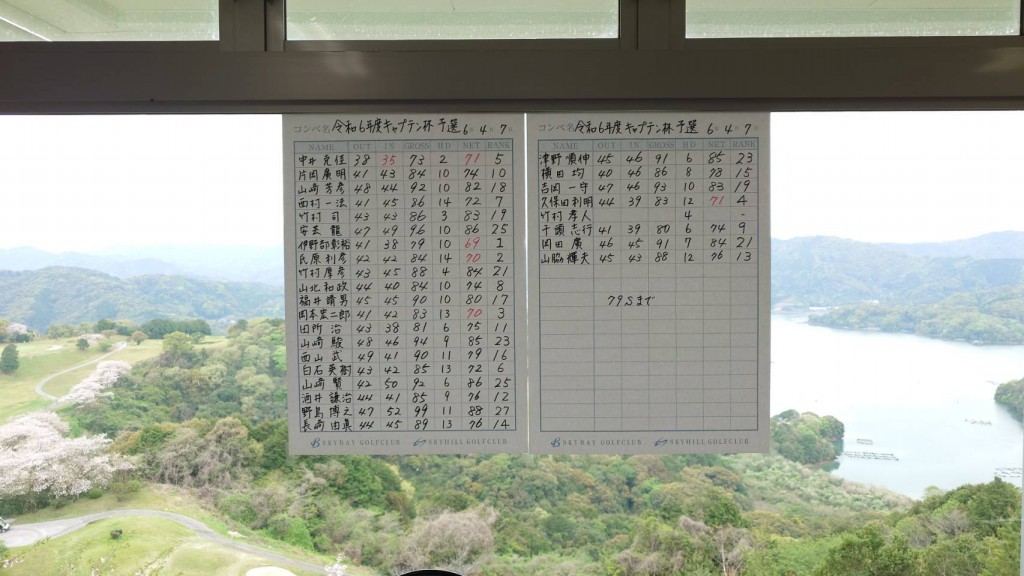 コンペ名 令和6年度キャプテン杯 予選 6年 4月 7日
NAME OUT IN GROSS HD NET RANK
中井 克佳 38 35 73 2 71 5
片岡 廣明 41 43 84 10 74 10
山崎 芳彦 48 44 92 10 82 18
西村 一法 41 45 86 14 72 7
竹村 司 43 43 86 3 83 19
安芸 龍 47 49 96 10 86 25
伊野部 彰裕 41 38 79 10 69 1
氏原 利彦 42 42 84 14 70 2
竹村 厚彦 43 45 88 4 84 21
山北 和政 44 40 84 10 74 8
福井 晴男 45 45 90 10 80 17
岡本 二郎 41 42 83 13 70 3
田所 治 43 38 81 6 75 11
山崎 駿 48 46 94 9 85 23
西山 武 49 41 90 11 79 16
白石 英樹 43 42 85 13 72 6
山崎 賢 42 50 92 6 86 25
酒井 謙治 44 41 85 9 76 12
野島 博之 47 52 99 11 88 27
長崎 由眞 44 45 89 13 76 14
SKYBAY GOLFCLUB SKYHILL GOLFCLUB
コンペ名 令和6年度キャプテン杯 予選 6年 4月 7日
NAME OUT IN GROSS HD NET RANK
津野 慎伸 45 46 91 6 85 23
横田 均 40 46 86 8 78 15
吉岡 一守 47 46 93 10 83 19
久保田 利明 44 39 83 12 71 4
竹村 孝人 4 -
千頭 志行 41 39 80 6 74 9
岡田 廣 46 45 91 7 84 21
山脇 輝夫 45 43 88 12 76 13
79.5まで
SKYBAY GOLFCLUB SKYHILL GOLFCLUB